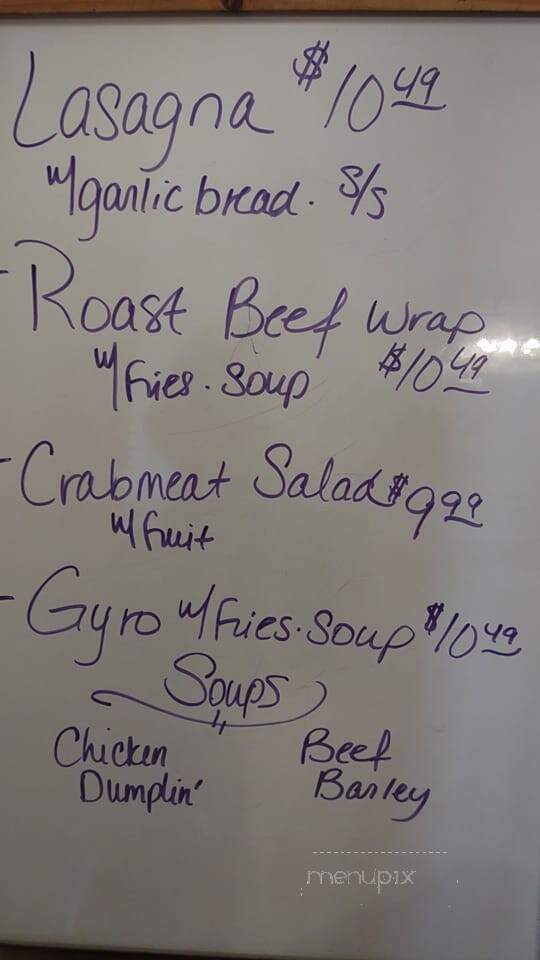 Lasagna $10.49
w/garlic bread. S/S
- Roast Beef Wrap
w/Fries. Soup $10.49
- Crabmeat Salad $9.99
w/fruit
- Gyro w/Fries. Soup $10.49
Soups
Chicken Beef
Dumplin' Barley
menupix